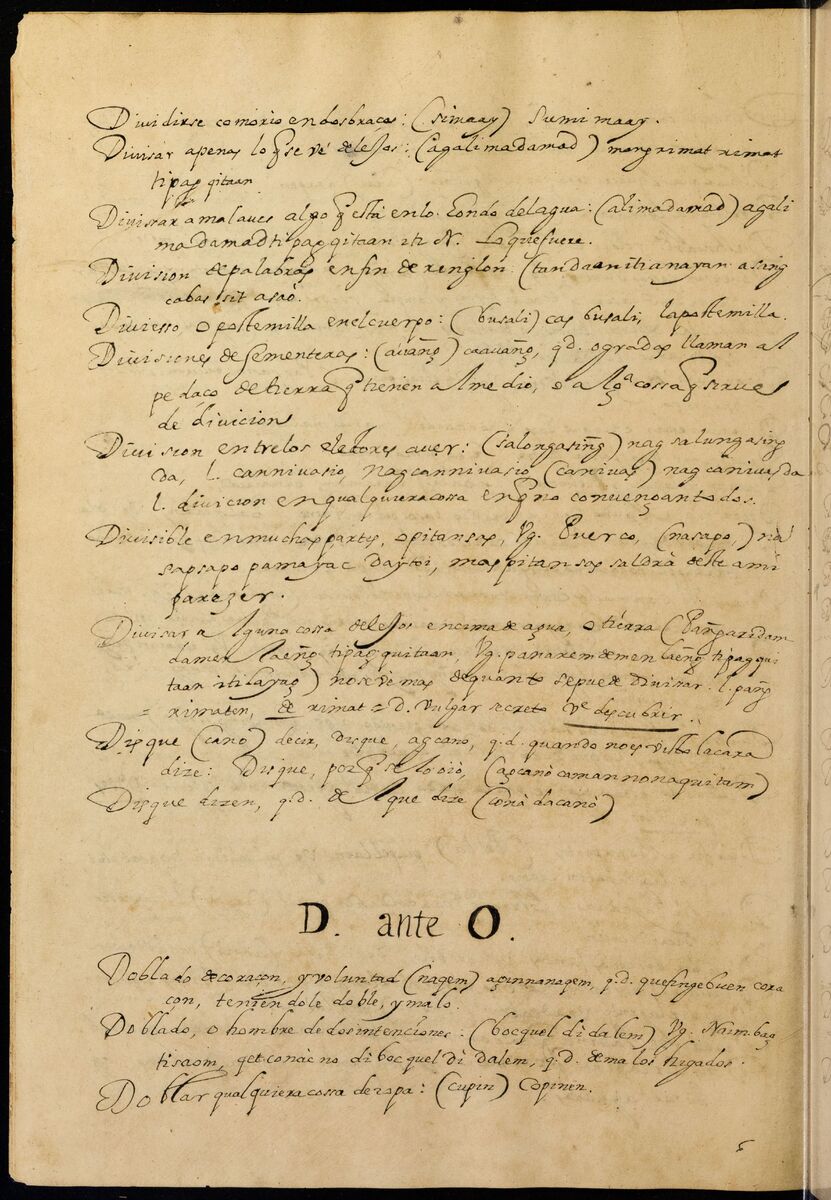 Dividirse comorio endosbraços: (simaay) sumimaay.
Divisar apenas lo q̃ se vé delejos: (agalimadamad) mangrimat rimat
tipag̃ qitaan
Divissar amalaves algo q̃ està enlo hondo delagua: (alimadamad) agali
madamad ti pag̃ qitaan iti N. Loquefuere.
Division de palabras en fin de renglon (tandaanitianayan asing
cabassit asaò.
Diviesso o postemilla enelcuerpo: (busali) cas busali, lapostemilla.
Divisiones de sementeras: (auãng) caauãng, q.d. ogradas llaman al
pedaço de tierra q̃ tienen almedio, o alg.ª cossa q̃ sirve
de divicion
Division entrelos eletores aver: (salongasing̃) nag salungasing̃
da, l. cannivasio, nagcannivasio (canivas) nag canivas da
l. divicion en qualquiera cossa en q̃ no convençantodos.
Divisible en muchas partes, opitansas, Vg. Puerco, (nasapo,) na
sapsapo pamayac daytoi, mas pitansas saldrà deste ami
parezer.
Divisar alguna cossa delejos encima de agua, o tierra (Pang̃aridam
damen laeng̃ tipag̃ quitaan, Vg. panaremdemen laeng̃ tipag qui
taan iti layag̃) nosevè mas dequanto sepuede divisar. l. pang̃
= rimaten, de rimat = D. vulgar secreto Vᵉ descubrir.
Disque (cano) decir, disque, agcano, q.d. quando no es visto lacara
dize: Disque, porq̃ se lo oiò, (ag̃canò camannonaquitam)
Disque dizen, q.d. del que dize (conà dacanò)
D. ante O.
Doblado de coraçon, y voluntad (nagem) aginnanagem, q.d. quefinge buen cora
con, teniendole doble, y malo.
Doblado, o hombre de dos intenciones: (bocquel di dalem) Vg. Num. bag̃
tisaom, qet conàc no di bocquel di dalem, q.d. de malos higados.
Doblar qualquiera cossa deropa: (cupin) Copinen.